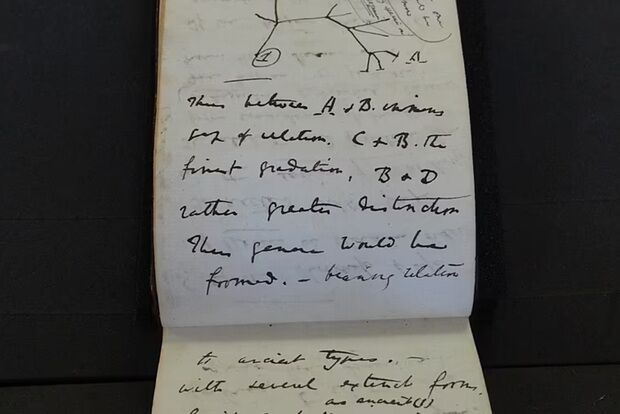 ① A
Thus between A & B. immens
gap of relation. C & B. the
finest gradation, B & D
rather greater distinction
Thus genera would be
formed. — bearing relation
to ancient types. —
with several extinct forms,
as ancient (1)